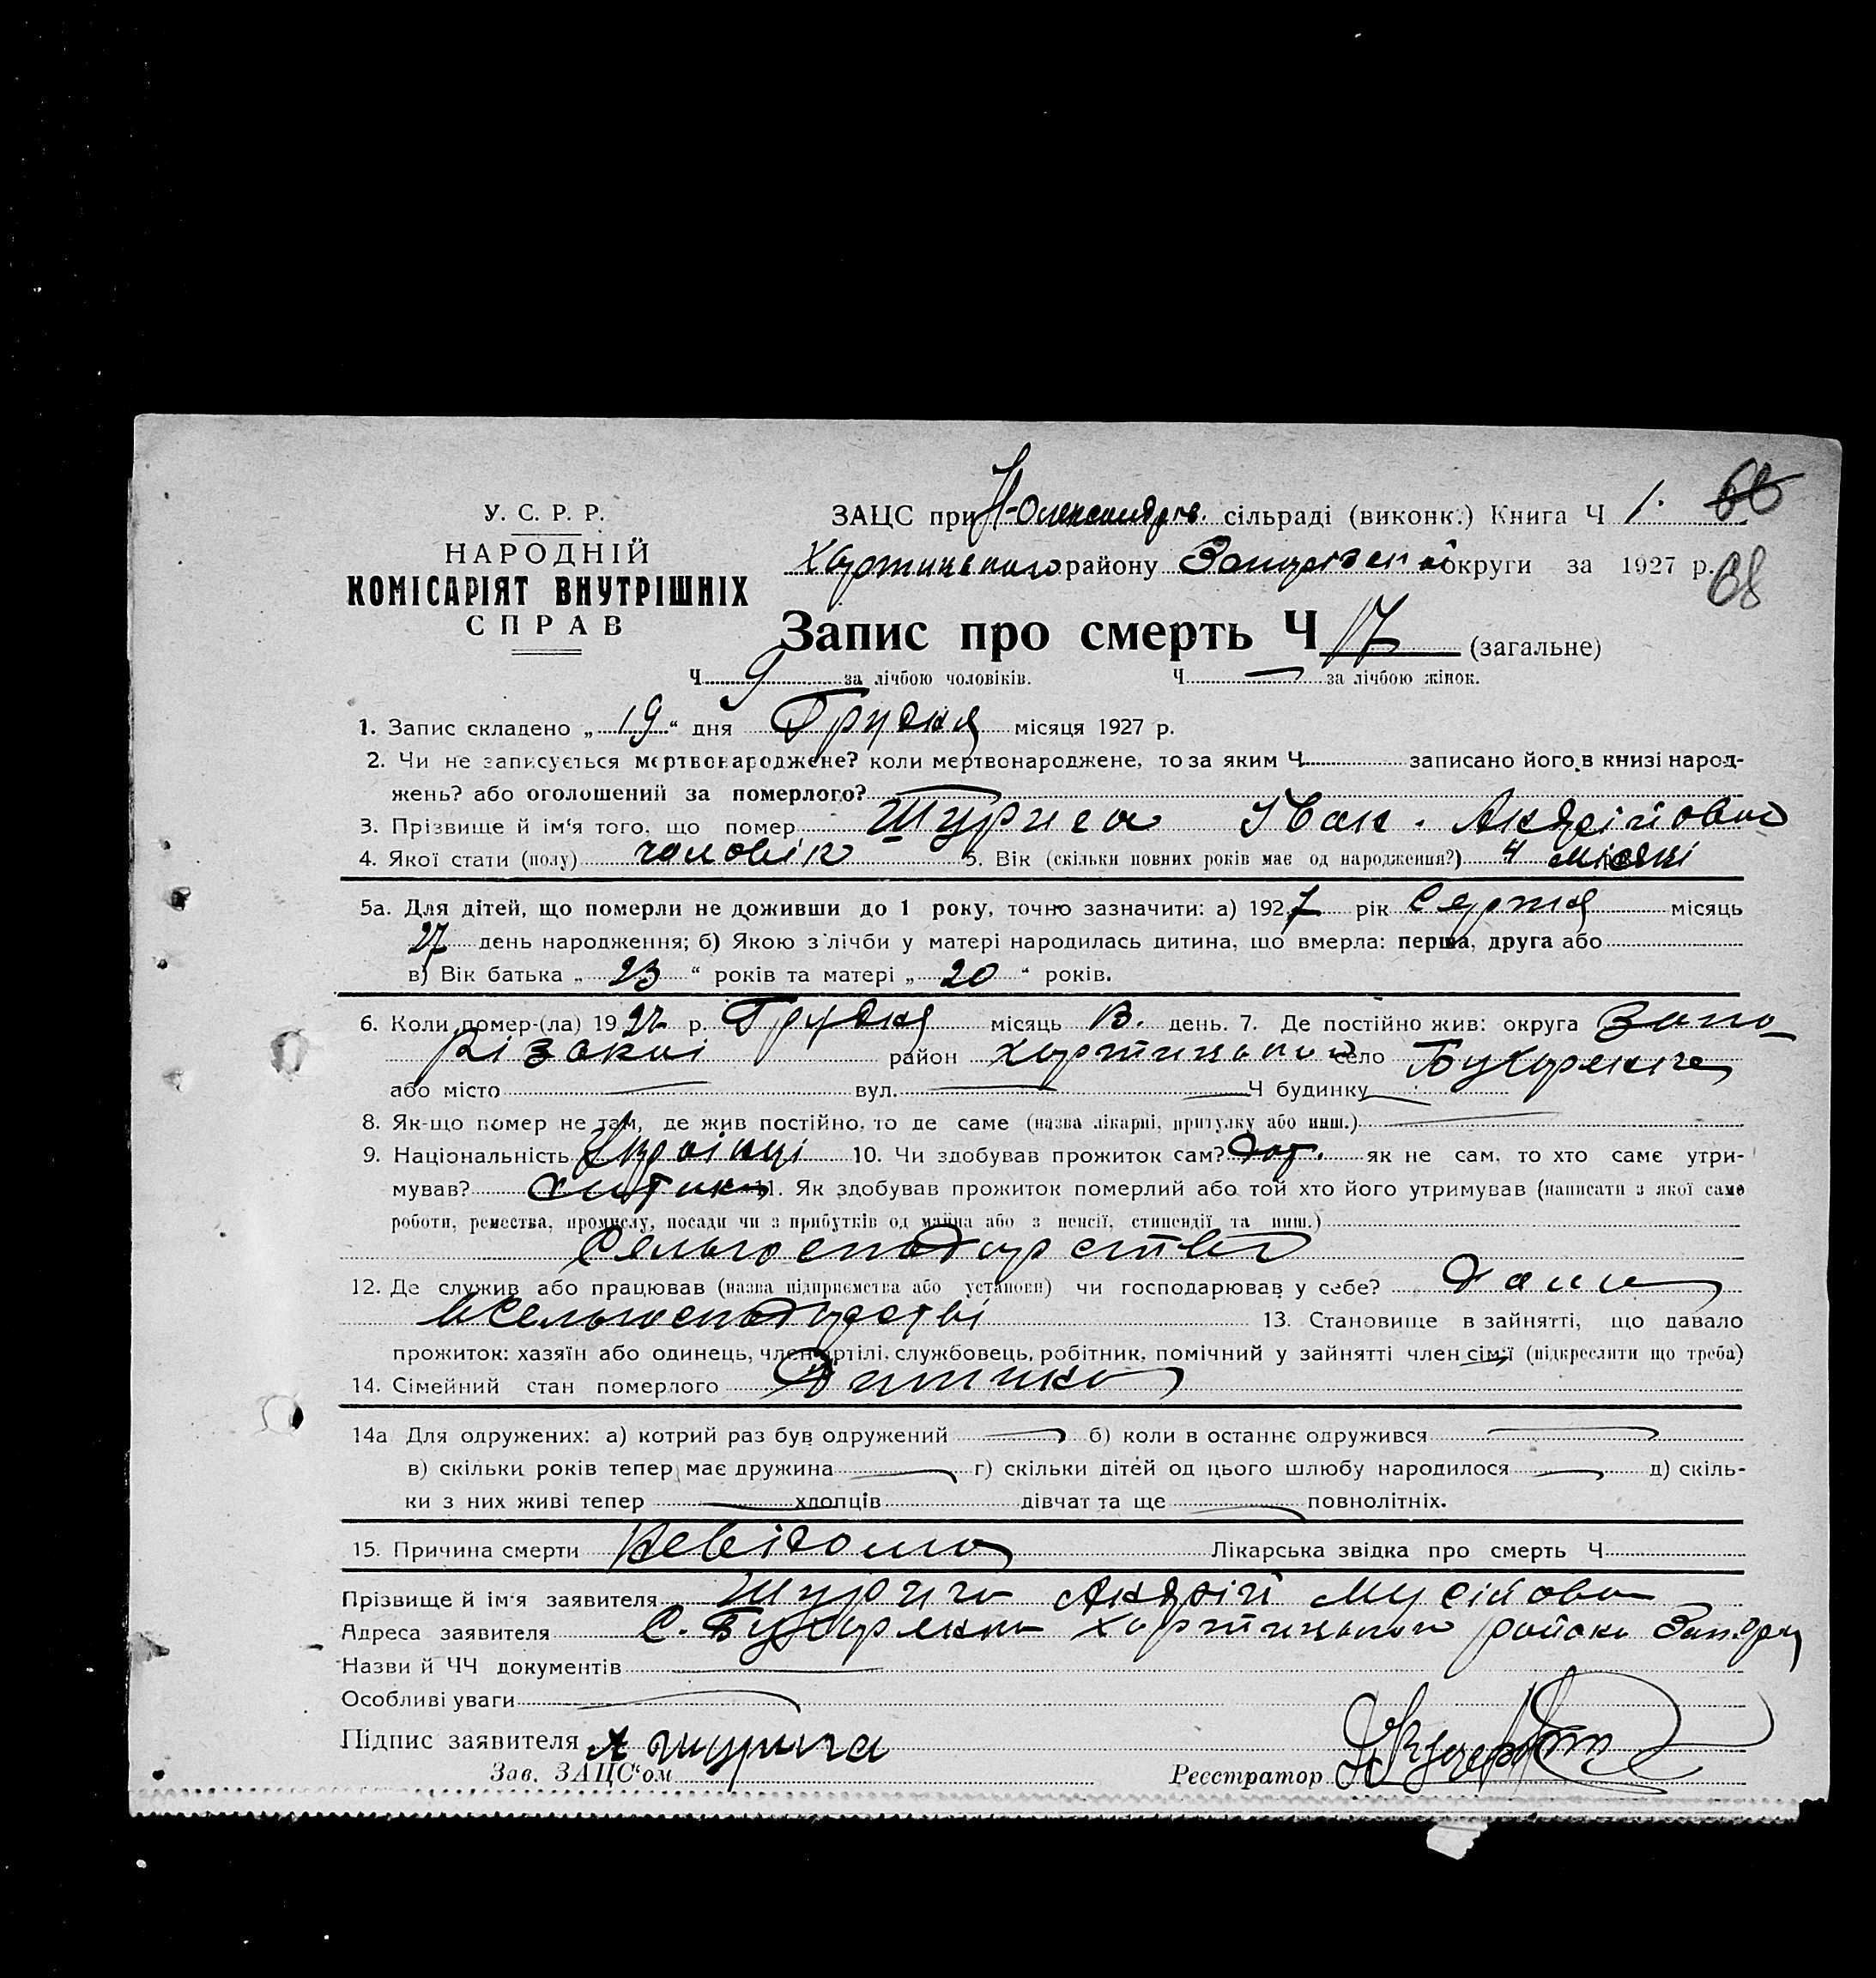 У. С. Р. Р.
НАРОДНІЙ
КОМІСАРІЯТ ВНУТРІШНІХ
СПРАВ
ЗАЦС при Н-Олександрів. сільраді (виконк.) Книга Ч 1. 66
Хортицького району Запорізької округи за 1927 р. 68
Запис про смерть Ч 17 (загальне)
Ч 9 за лічбою чоловіків. Ч — за лічбою жінок.
1. Запис складено „19“ дня Грудня місяця 1927 р.
2. Чи не записується мертвонароджене? коли мертвонароджене, то за яким Ч записано його в книзі народ-
жень? або оголошений за померлого?
3. Прізвище й ім‘я того, що помер Шурига Іван. Андрійович
4. Якої стати (полу) чоловік 5. Вік (скільки повних років має од народження?) 4 місяці
5а. Для дітей, що померли не доживши до 1 року, точно зазначити: а) 1927 рік Серпня місяць
27 день народження; б) Якою з лічби у матері народилась дитина, що вмерла: перша, друга або
в) Вік батька „23“ років та матері „20“ років.
6. Коли помер-(ла) 1927 р. Грудня місяць день. 7. Де постійно жив: округа Запо-
різької район Хортицького село
або місто — вул. — Ч будинку —
8. Як-що помер не там, де жив постійно, то де саме (назва лікарні, притулку або инш.) —
9. Національність Українці 10. Чи здобував прожиток сам? як не сам, то хто саме утри-
мував? 11. Як здобував прожиток померлий або той хто його утримував (написати з якої саме
роботи, ремества, промислу, посади чи з прибутків од майна або з пенсії, стипендії та инш.)
Сельгосподарство
12. Де служив або працював (назва підприємства або установи) чи господарював у себе? дома
в Сельгосподарстві 13. Становище в зайнятті, що давало
прожиток: хазяїн або одинець, член артілі, службовець, робітник, помічний у зайнятті член сім‘ї (підкреслити що треба)
14. Сімейний стан померлого Дитина
14а Для одружених: а) котрий раз був одружений — б) коли в останнє одружився —
в) скільки років тепер має дружина — г) скільки дітей од цього шлюбу народилося — д) скіль-
ки з них живі тепер — хлопців дівчат та ще — повнолітніх.
15. Причина смерти невідома Лікарська звідка про смерть Ч
Прізвище й ім‘я заявителя Шурига Андрій Мусійович
Адреса заявителя С. Хортицького району Запоріз
Назви й ЧЧ документів —
Особливі уваги —
Підпис заявителя А Шурига
Зав. ЗАЦС‘ом Реєстратор